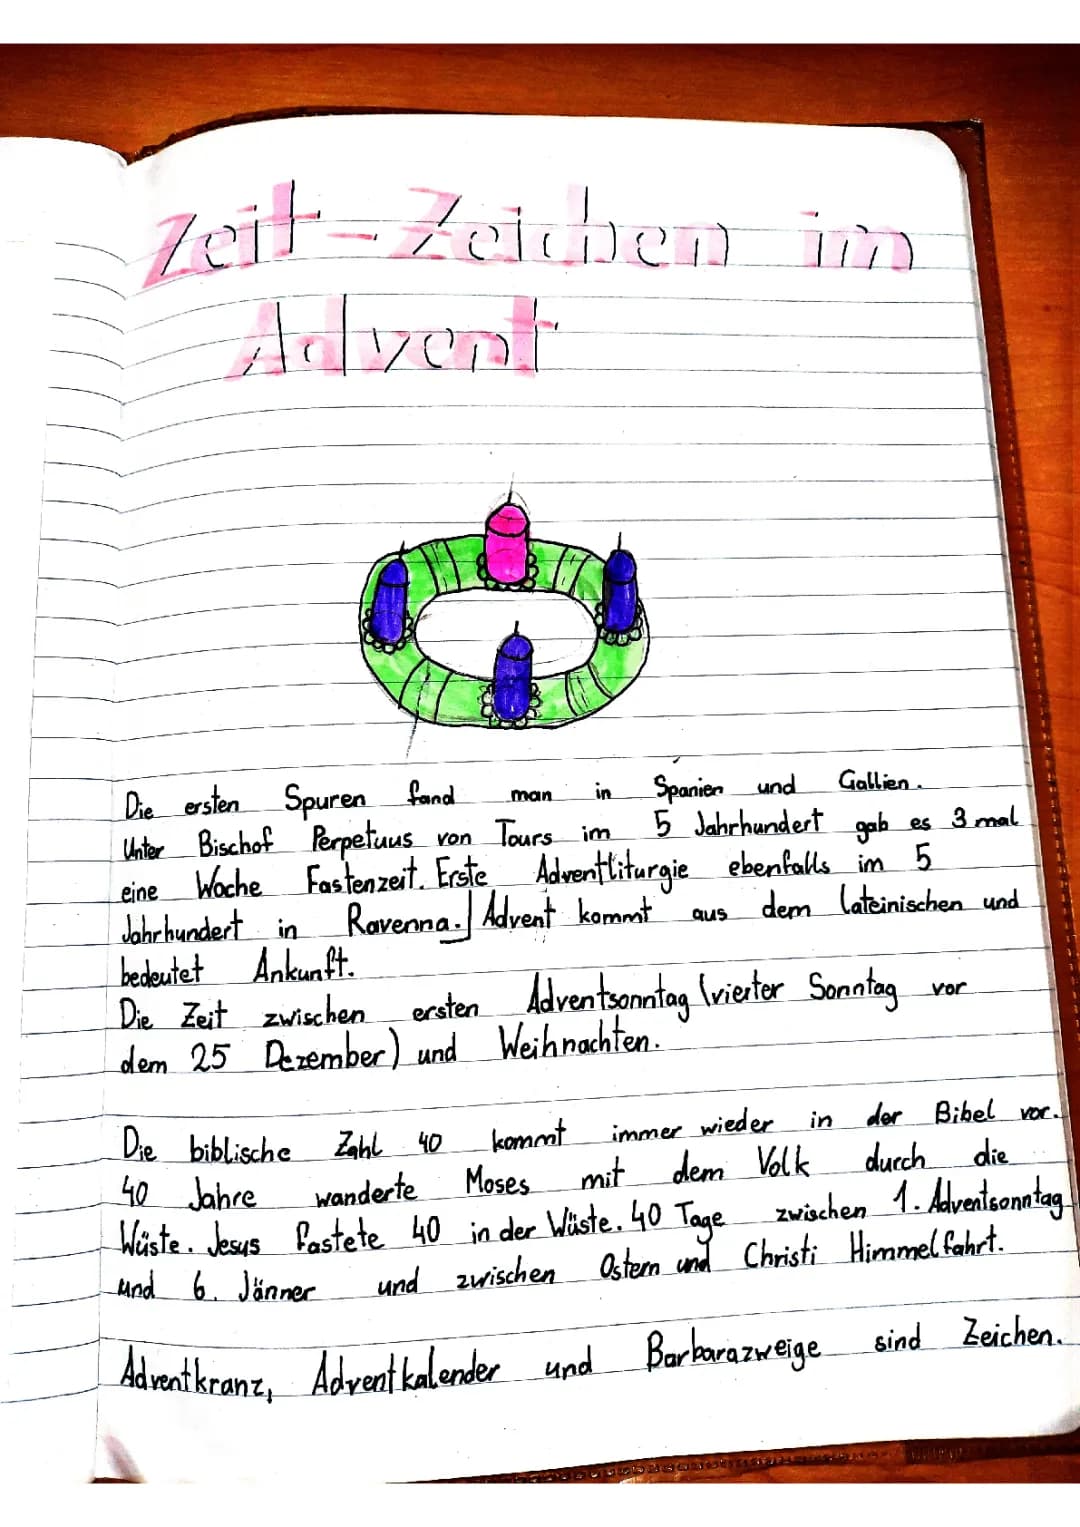 Zeit-Zeichen im
Advent
Die ersten Spuren fand man in Spanien und Gallien.
Unter Bischof Perpetuus von Tours im 5 Jahrhundert gab es 3 mal
eine Woche Fastenzeit. Erste Adventliturgie ebenfalls im 5
Jahrhundert in Ravenna. Advent kommt aus dem lateinischen und
bedeutet Ankunft.
Die Zeit zwischen ersten Adventsonntag (vierter Sonntag vor
dem 25 Dezember) und Weihnachten.
Die biblische Zahl 40 kommt immer wieder in der Bibel vor.
40 Jahre wanderte Moses mit dem Volk durch die
Wüste. Jesus fastete 40 in der Wüste. 40 Tage zwischen 1. Adventsonntag
und 6. Jänner und zwischen Ostern und Christi Himmelfahrt.
Adventkranz, Adventkalender und Barbarazweige sind Zeichen.